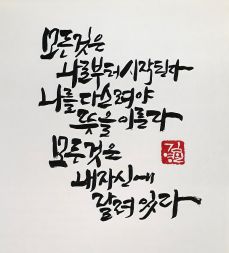 모든것은
나로부터시작된다
나를다스려야
뜻을이룬다
모두것은
내자신에
달려있다